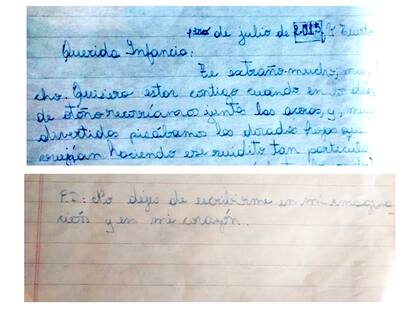 1ero de julio de 2015
Querida Infancia:
Te extraño mucho, mu-
cho. Quisiera estar contigo cuando en los días
de otoño recorríamos juntas las aceras, y, muy
divertidas pisábamos las doradas hojas que
crujían haciendo ese ruidito tan particular
P.D: No dejes de escribirme en mi imagina
ción y en mi corazón.